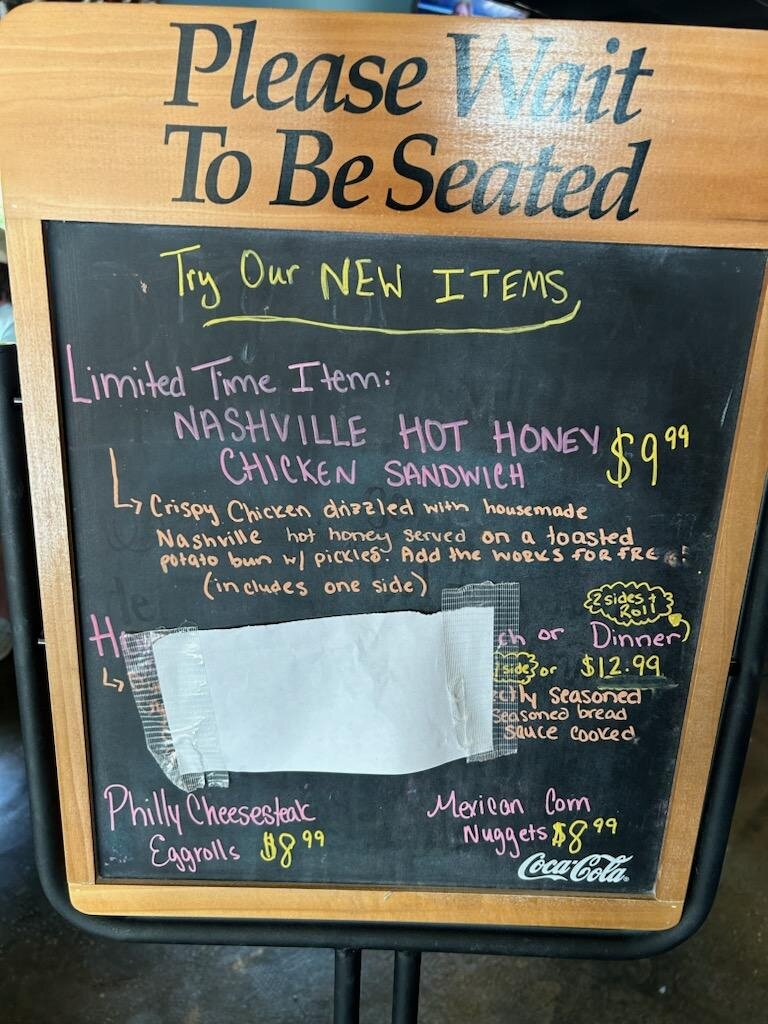 Please Wait
To Be Seated
Try Our NEW ITEMS
Limited Time Item:
NASHVILLE HOT HONEY
CHICKEN SANDWICH $9.99
Crispy Chicken drizzled with housemade
Nashville hot honey served on a toasted
potato bun w/ pickles. Add the WORKS FOR FREE!
(includes one side)
2 sides +
Roll
or Dinner
side or $12.99
seasoned
seasoned bread
sauce cooked
Philly Cheesesteak
Eggrolls $8.99
Mexican Corn
Nuggets $8.99
Coca-Cola